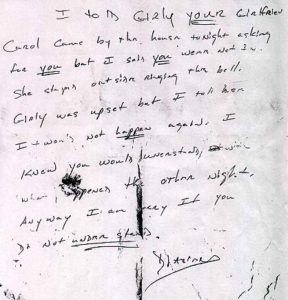 I told Girly your Girlfriend
Carol came by the house tonight asking
for you but I said you were not in.
She stayed outside ringing the bell.
Girly was upset but I told her
It won't not happen again. I
Know you would understand,
what happened the other night.
Anyway I am sorry if you
Do not understand.